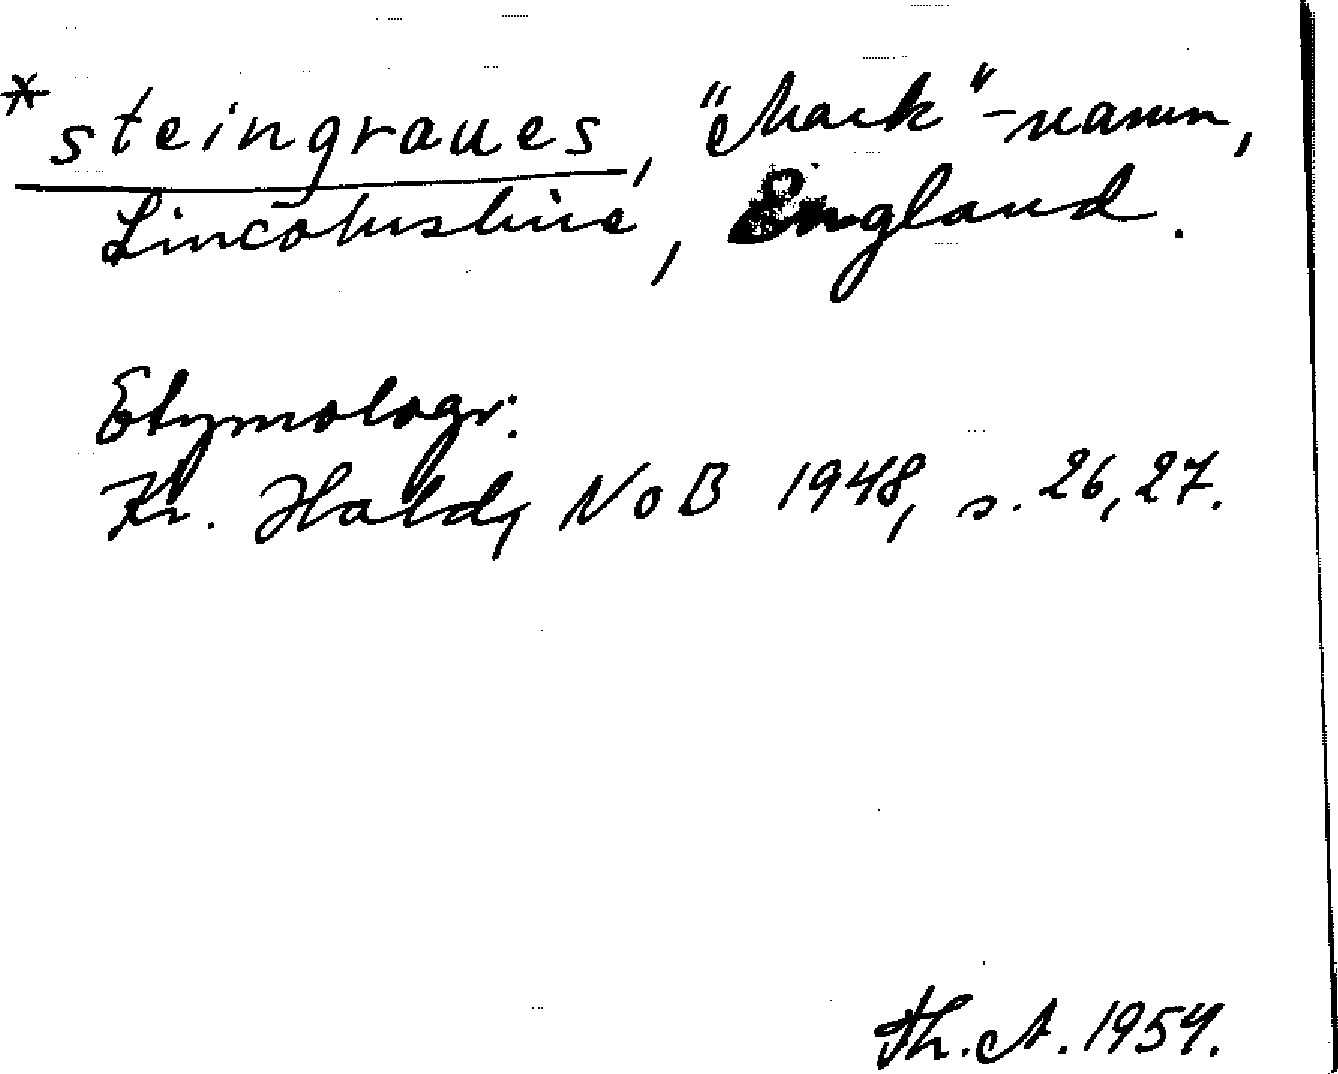 *steingraues, "Mark"-namn,
Lincolnshire, England.
Etymologi:
Kr. Hald, NoB 1948, s. 26, 27.
Th. A. 1954.